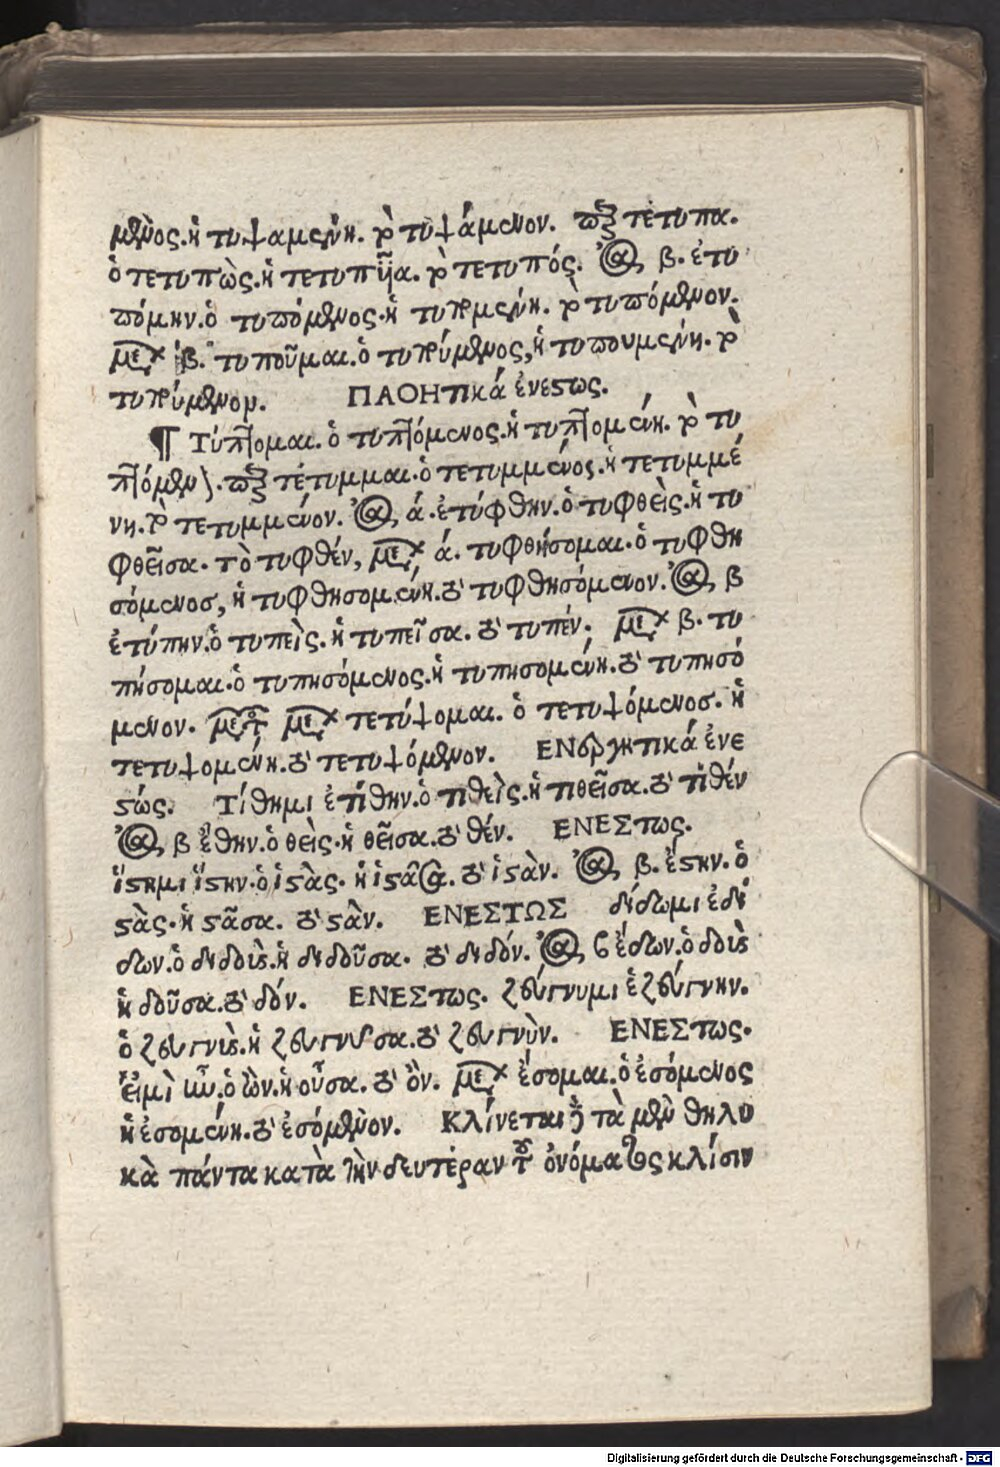 μενος. ἡ τυψαμένη. τὸ τυψάμενον. παρξ τέτυπα.
ὁ τετυπὼς. ἡ τετυπῆα. τὸ τετυπός. ἀο, β. ἐτυ
πόμην. ὁ τυπόμενος. ἡ τυπομένη. τὸ τυπόμενον.
μελλ β. τυποῦμαι. ὁ τυπούμενος, ἡ τυπουμένη. τὸ
τυπούμενον. ΠΑΘΗτικά ἐνεστως.
¶ Τύπτομαι. ὁ τυπτόμενος. ἡ τυπτομένη. τὸ τυ
πτόμενον. παρξ τέτυμμαι. ὁ τετυμμένος. ἡ τετυμμέ
νη. τὸ τετυμμένον. ἀο, ά. ἐτύφθην. ὁ τυφθεὶς. ἡ τυ
φθεῖσα. τὸ τυφθέν, μελλ ά. τυφθήσομαι. ὁ τυφθη
σόμενοσ, ἡ τυφθησομένη. τὸ τυφθησόμενον. ἀο, β
ἐτύπην. ὁ τυπεὶς. ἡ τυπεῖσα. τὸ τυπέν. μελλ β. τυ
πήσομαι. ὁ τυπησόμενος. ἡ τυπησομένη. τὸ τυπησό
μενον. μετ μελλ τετύψομαι. ὁ τετυψόμενοσ. ἡ
τετυψομένη. τὸ τετυψόμενον. ΕΝεργητικά ἐνε
στώς. Τίθημι ἐτίθην. ὁ τιθεὶς. ἡ τιθεῖσα. τὸ τιθέν
ἀο, β ἔθην. ὁ θεὶς. ἡ θεῖσα. τὸ θέν. ΕΝΕΣτως.
ἵστημι ἵστην. ὁ ἱστὰς. ἡ ἱστᾶσα. τὸ ἱστὰν. ἀο, β. ἔστην. ὁ
στὰς. ἡ στᾶσα. τὸ στὰν. ΕΝΕΣΤΩΣ δίδωμι ἐδί
δων. ὁ διδοὺς. ἡ διδοῦσα. τὸ διδόν. ἀο, β ἔδων. ὁ δοὺς
ἡ δοῦσα. τὸ δόν. ΕΝΕΣτως. ζεύγνυμι ἐζεύγνην.
ὁ ζευγνὺς. ἡ ζευγνῦσα. τὸ ζευγνὺν. ΕΝΕΣτως.
εἰμὶ ὢν. ὁ ὢν. ἡ οὖσα. τὸ ὂν. μελλ ἔσομαι. ὁ ἐσόμενος
ἡ ἐσομένη. τὸ ἐσόμενον. Κλίνεται δὲ τὰ μὲν θηλυ
κὰ πάντα κατὰ τὴν δευτέραν τοῦ ὀνόματος κλίσιν
Digitalisierung gefördert durch die Deutsche Forschungsgemeinschaft - DFG